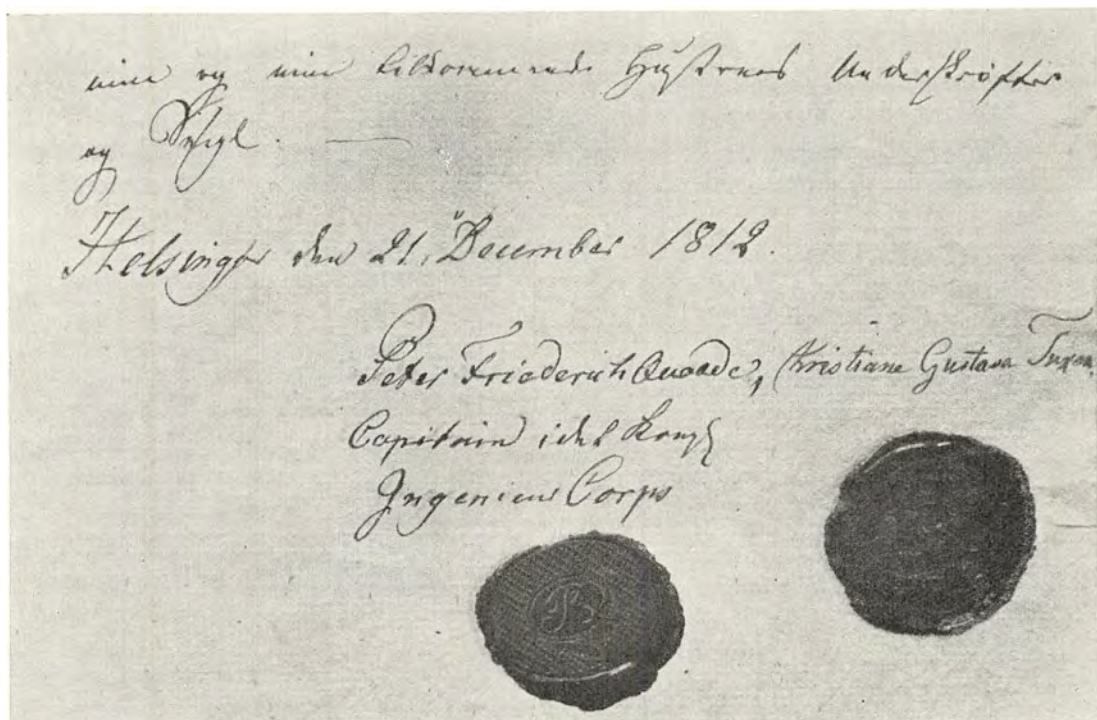 mine og min tilkommende Hustrues Underskrifter
og Seigl.
Helsingör den 21. December 1812.
Peter Friederich Quaade, Kristiane Gustava Tuxen.
Capitain i det Kongl
Ingenieur Corps